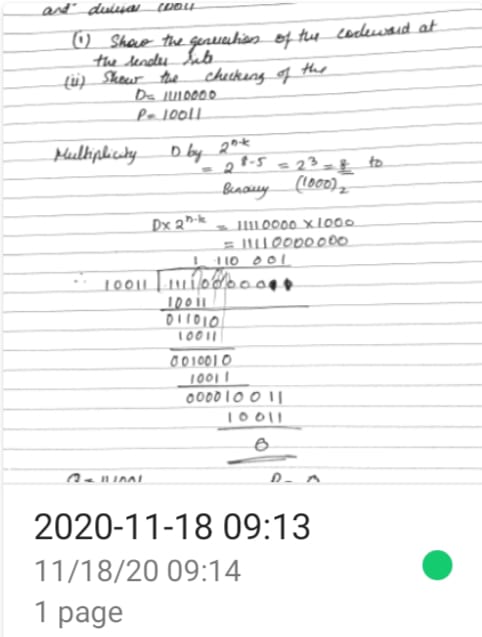 and
(i) Show the generation of the codeword at
the sender
(ii) Show the checking of the
D= 11110000
P= 10011
Multiplicity D by 2^n-k
= 2^8-5 = 2^3 = 8 to
Binary (1000)₂
D×2^n-k = 11110000 ×1000
= 11110000000
1 110 001
∴ 10011
10011
011010
10011
0010010
10011
000010011
10011
0
2020-11-18 09:13
11/18/20 09:14
1 page